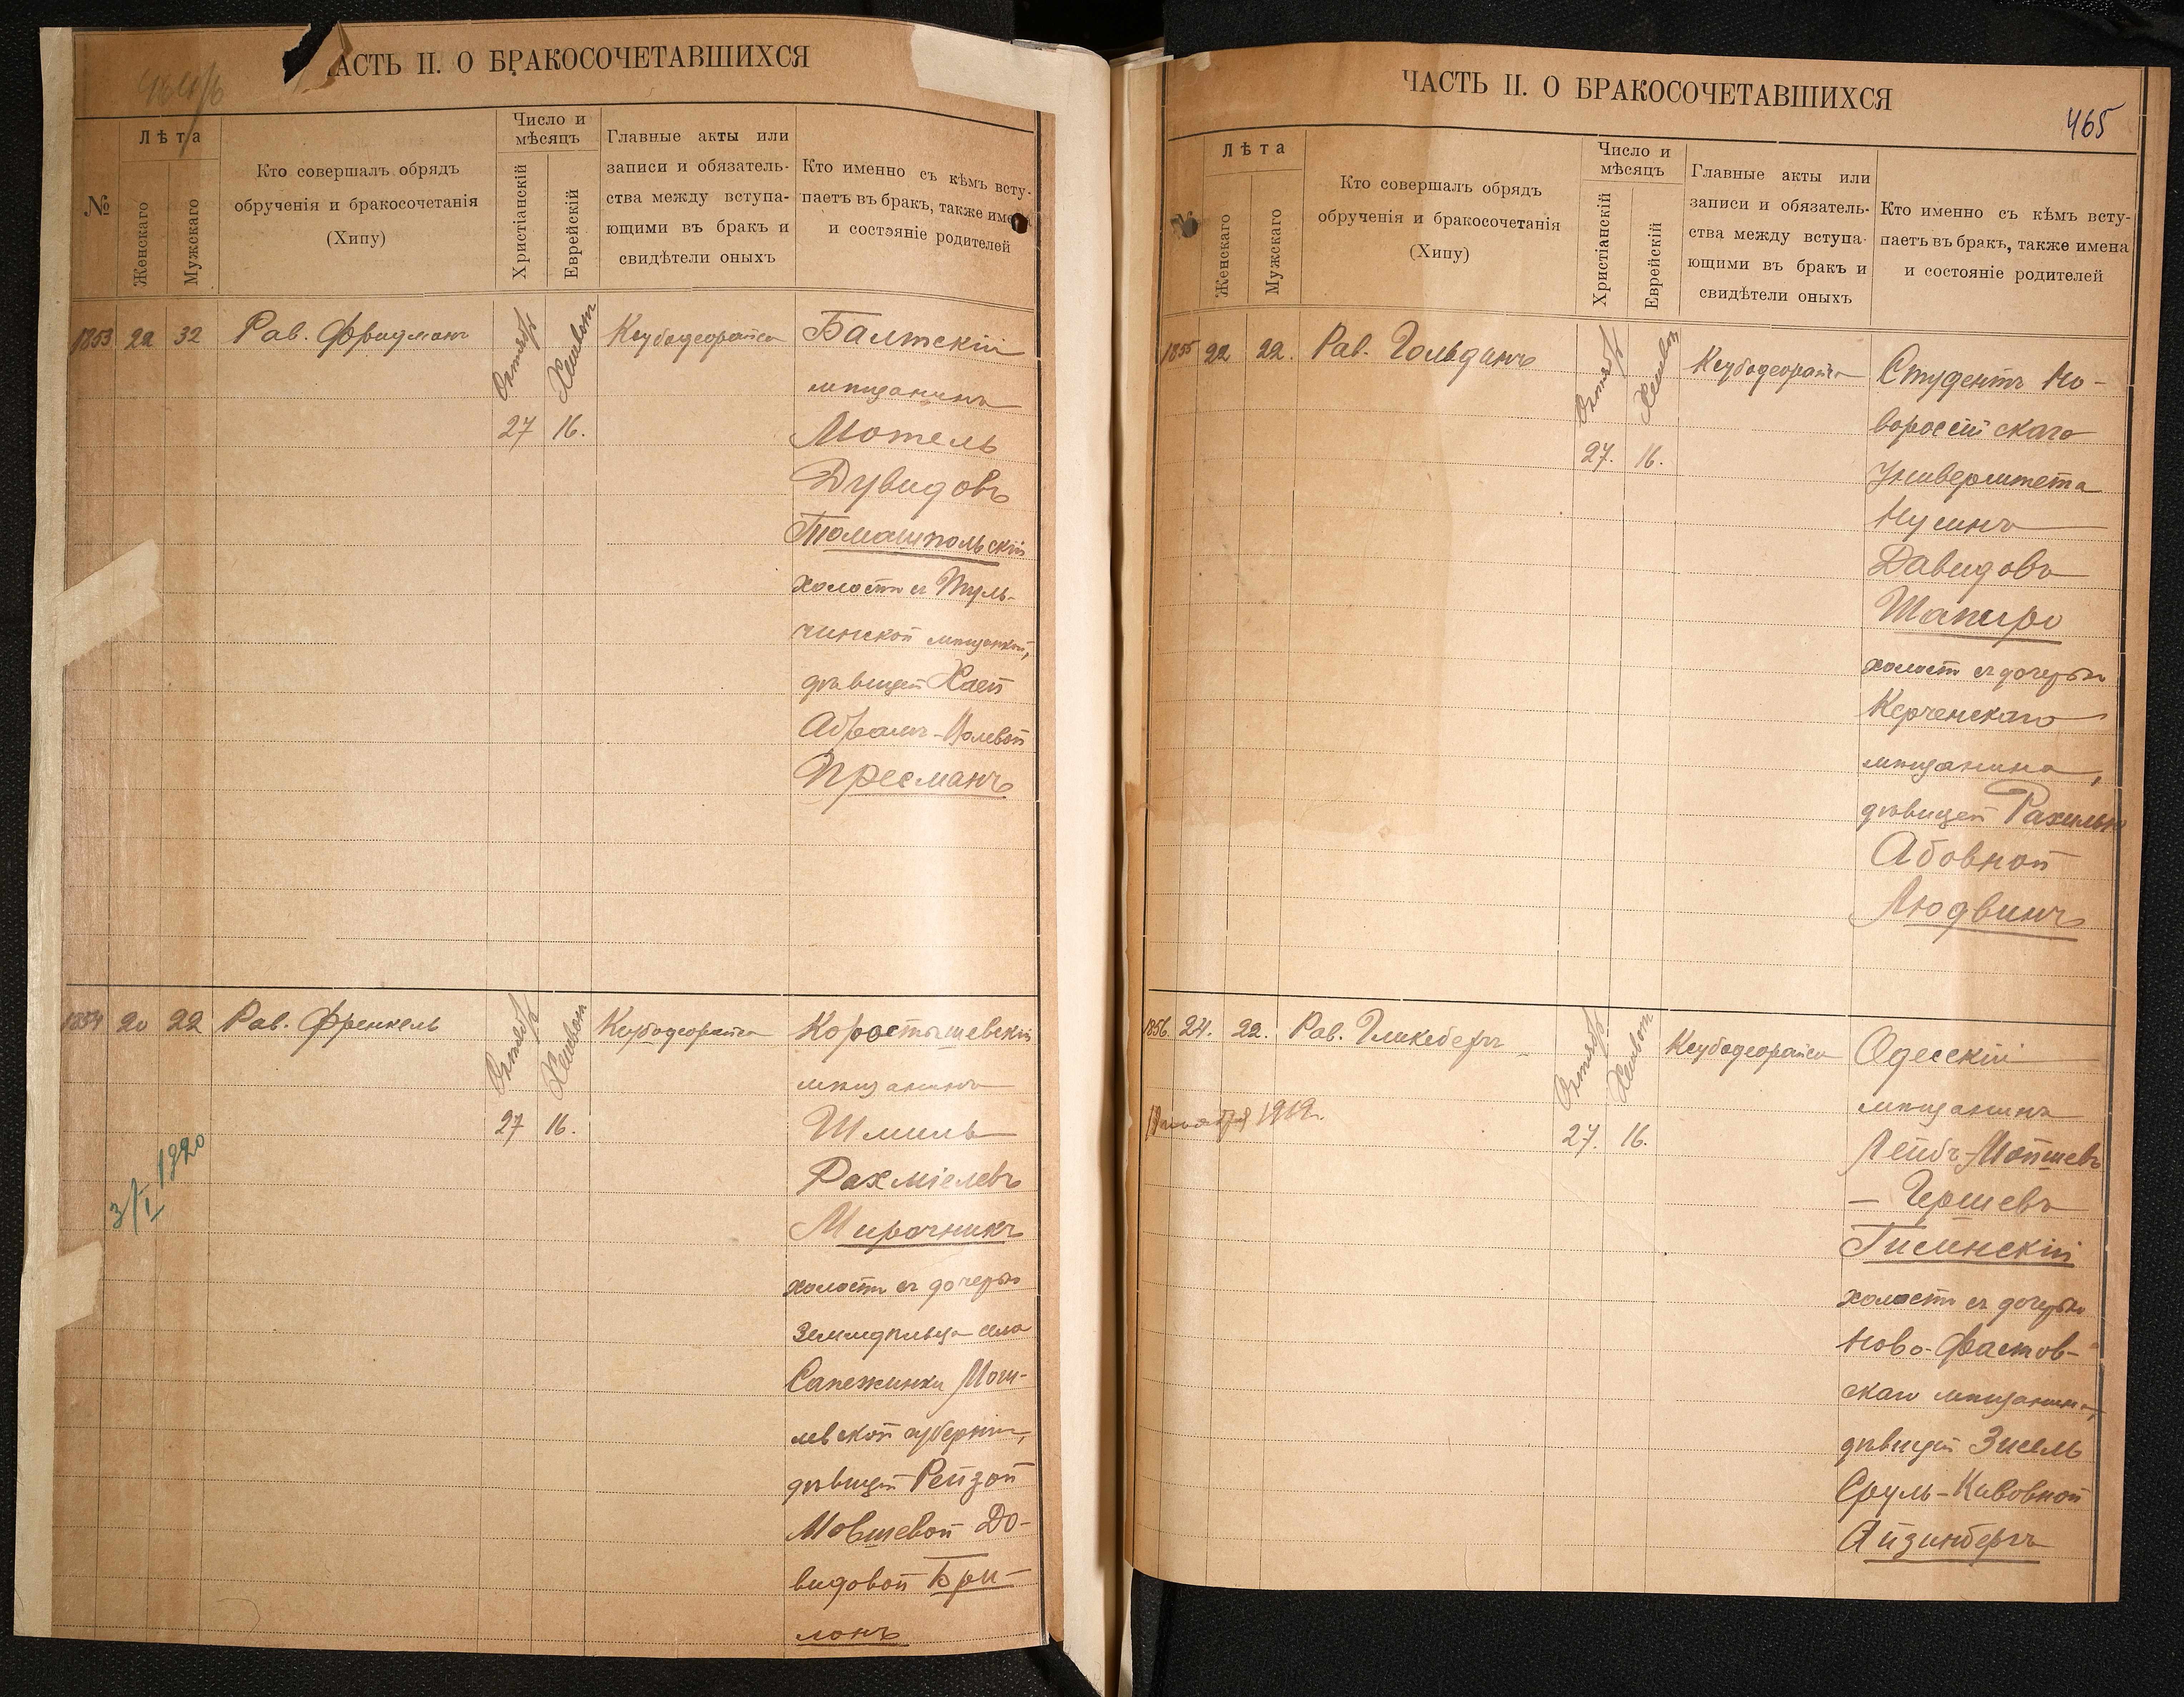 АСТЬ II. О БРАКОСОЧЕТАВШИХСЯ
№
Лѣта
Женскаго
Мужскаго
Кто совершалъ обрядъ
обрученія и бракосочетанія
(Хипу)
Число и
мѣсяцъ
Христіанскій
Еврейскій
Главные акты или
записи и обязатель-
ства между вступа-
ющими въ бракъ и
свидѣтели оныхъ
Кто именно съ кѣмъ всту-
паетъ въ бракъ, также име
и состояніе родителей
1853 22 32 Рав. Фридманъ
Октябрь
Хешвон
27 16.
Ксубодеорайса
Балтскій
мѣщанинъ
Мотель
Дувидовъ
Томашпольскій
холост съ Туль-
чинской мѣщанкой,
дѣвицей Хаей
Абрамъ-
Пресманъ
1854 20 22 Рав. Френкель
Октябрь
Хешвон
27 16.
Ксубодеорайса
Коростышевскій
мѣщанинъ
Шмиль
Рахміелевъ
Мирочникъ
холост съ дочерью
земледѣльца села
Сапежинки Моги-
левской губерніи,
дѣвицей Рейзой
Мовшевой До-
видовой Бри-
лонъ
3/I 1920
ЧАСТЬ II. О БРАКОСОЧЕТАВШИХСЯ
465
Лѣта
Женскаго
Мужскаго
Кто совершалъ обрядъ
обрученія и бракосочетанія
(Хипу)
Число и
мѣсяцъ
Христіанскій
Еврейскій
Главные акты или
записи и обязатель-
ства между вступа-
ющими въ бракъ и
свидѣтели оныхъ
Кто именно съ кѣмъ всту-
паетъ въ бракъ, также имена
и состояніе родителей
1855 22 22. Рав. Гольданъ
Октябрь
Хешвон
27. 16.
Ксубодеорайса
Студентъ Но-
вороссійскаго
Университета
Нусинъ
Давидовъ
Шапиро
холост съ дочерью
Керченскаго
мѣщанина,
дѣвицей Рахилью
Абовной
Людвинъ
1856. 24. 22. Рав. Гликсбергъ
Октябрь
Хешвон
27. 16.
Ксубодеорайса
1919г.
Одесскій
мѣщанинъ
Лейбъ-Мойшевъ
– Гершевъ
Гисинскій
холост съ дочерью
Ново-Фастов-
скаго мѣщанина,
дѣвицей Зисель
Сруль-Кивовной
Айзинбергъ